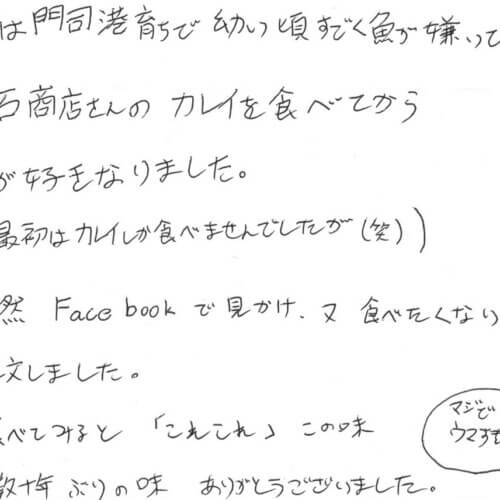 は門司港育ちで 幼い頃すごく魚が嫌いで
石商店さんの カレイを食べてから
が好きなりました。
最初はカレイしか食べませんでしたが(笑))
然 Facebook で見かけ、又 食べたくなり
文しました。
べてみると 「これこれ」 この味
数十年ぶりの味 ありがとうございました。
マジで
ウマすぎ